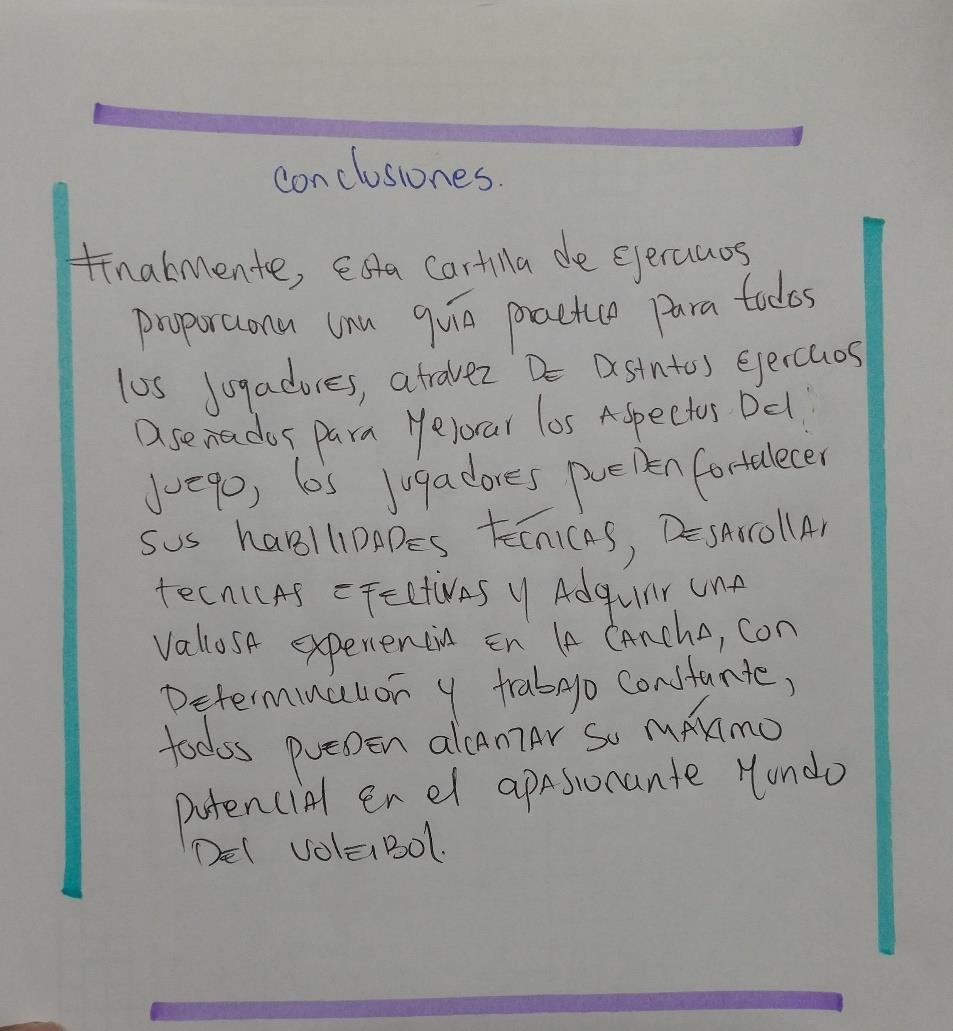 conclusiones.
Finalmente, Esta cartilla de Ejercicios
proporciona una guía practica para todos
los jugadores, atravez DE Distintos Ejercicios
Diseñados para Mejorar los Aspectos Del
juego, los jugadores pueden fortalecer
sus habilidades técnicas, Desarrollar
tecnicas Efectivas y Adquirir una
Valiosa experiencia En la cancha, con
Determinación y trabajo constante,
todos pueden alcanzar su máximo
potencial En el apasionante Mundo
Del voleibol.